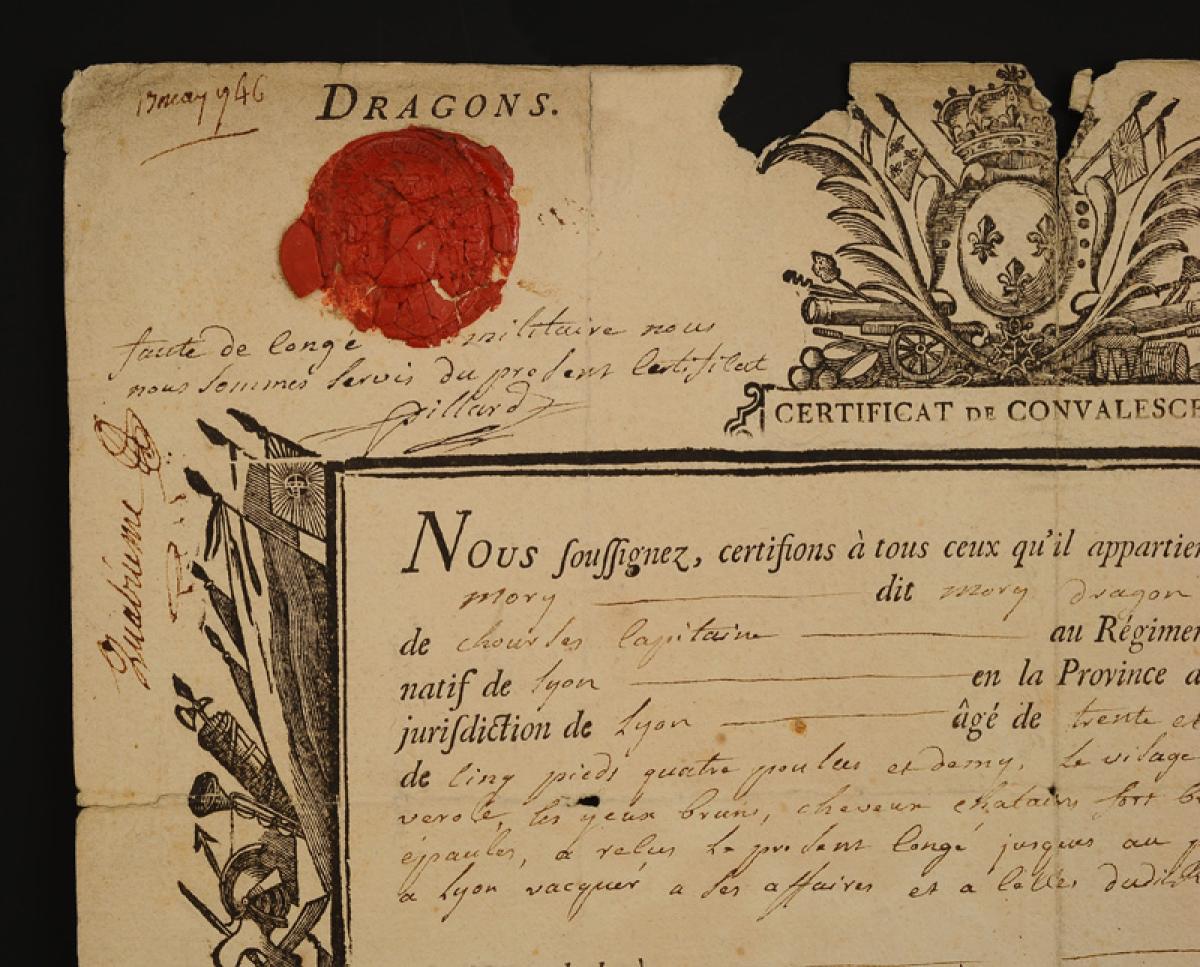 13 may 1746
DRAGONS.
faute de longé militaire nous
nous sommes servis du present Certificat
pillard
CERTIFICAT DE CONVALESCE
NOUS souſſignez, certifions à tous ceux qu'il appartien
mory dit mory dragon
de chourses Capitaine au Régimen
natif de Lyon en la Province
juriſdiction de Lyon âgé de trente et
de Cinq pieds quatre pouces et demy, Le visage
verolé, les yeux bruns, cheveux chatains fort b
épaules, a relus Le present Congé jusques au
a Lyon vacquer a ses affaires et a Celles dudit